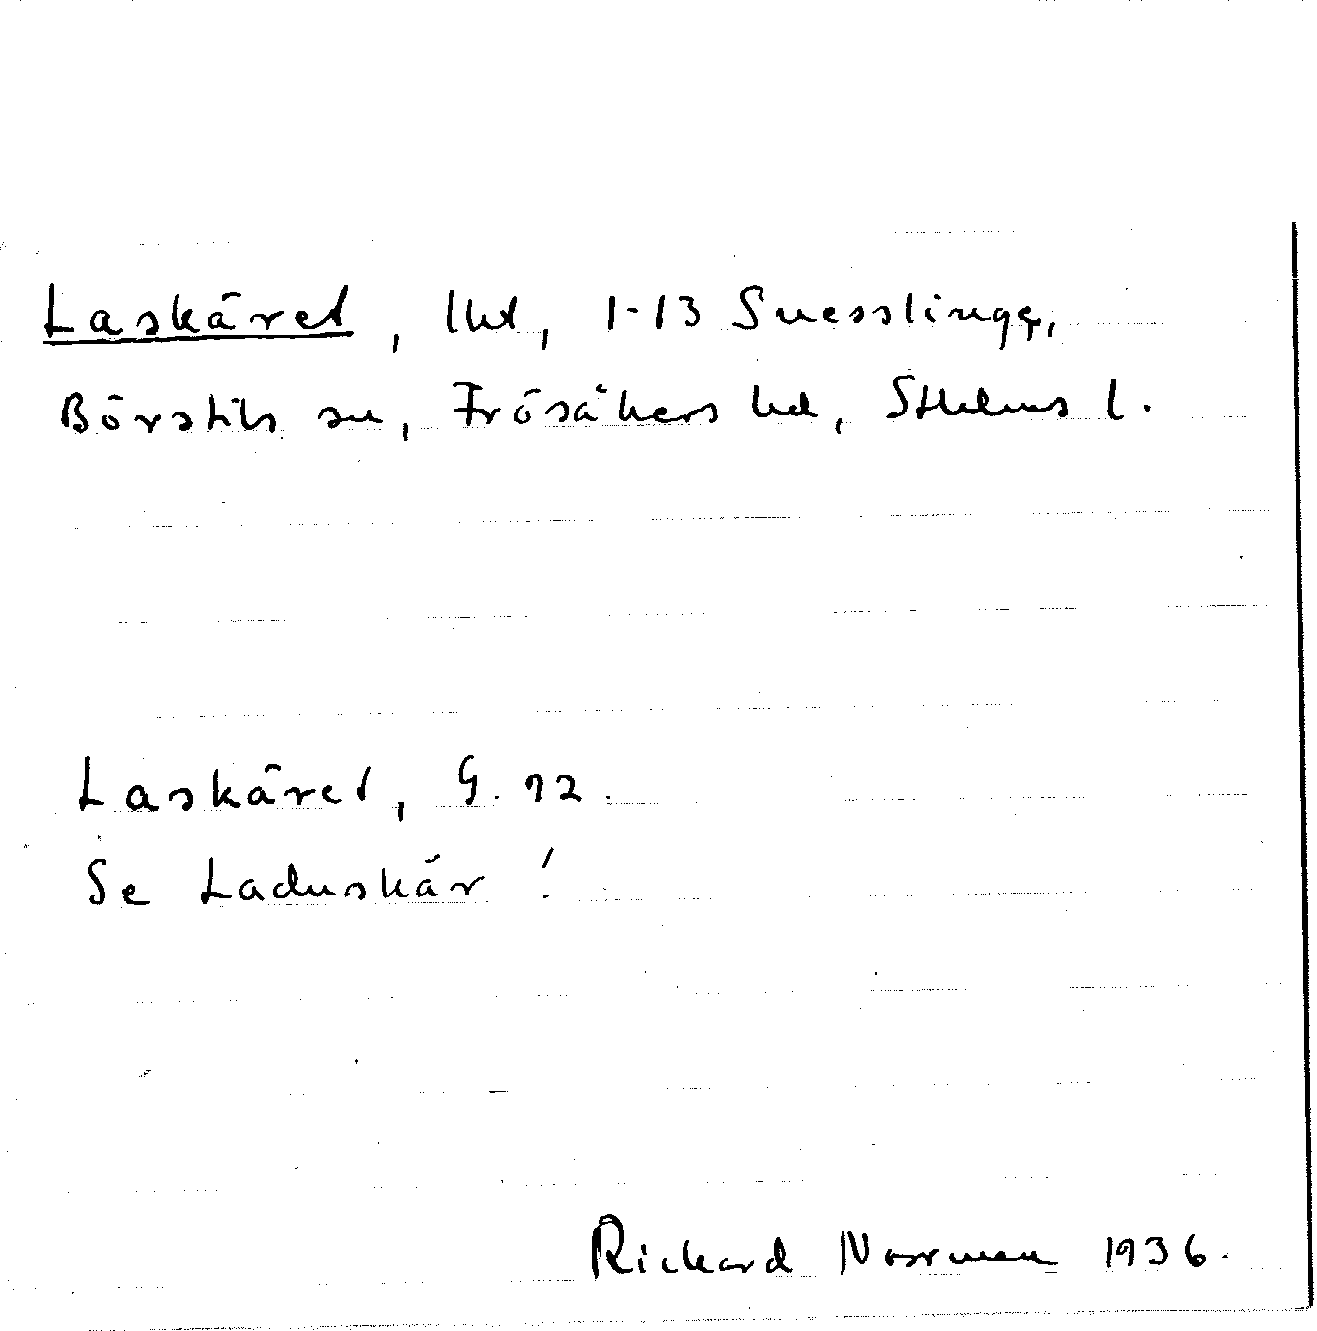 Laskäret, lht, 1-13 Snesslinge,
Börstils sn, Frösåkers hd, Sthlms l.
Laskäret, G. 92.
Se Laduskär!
Rickard Norrman 1936.